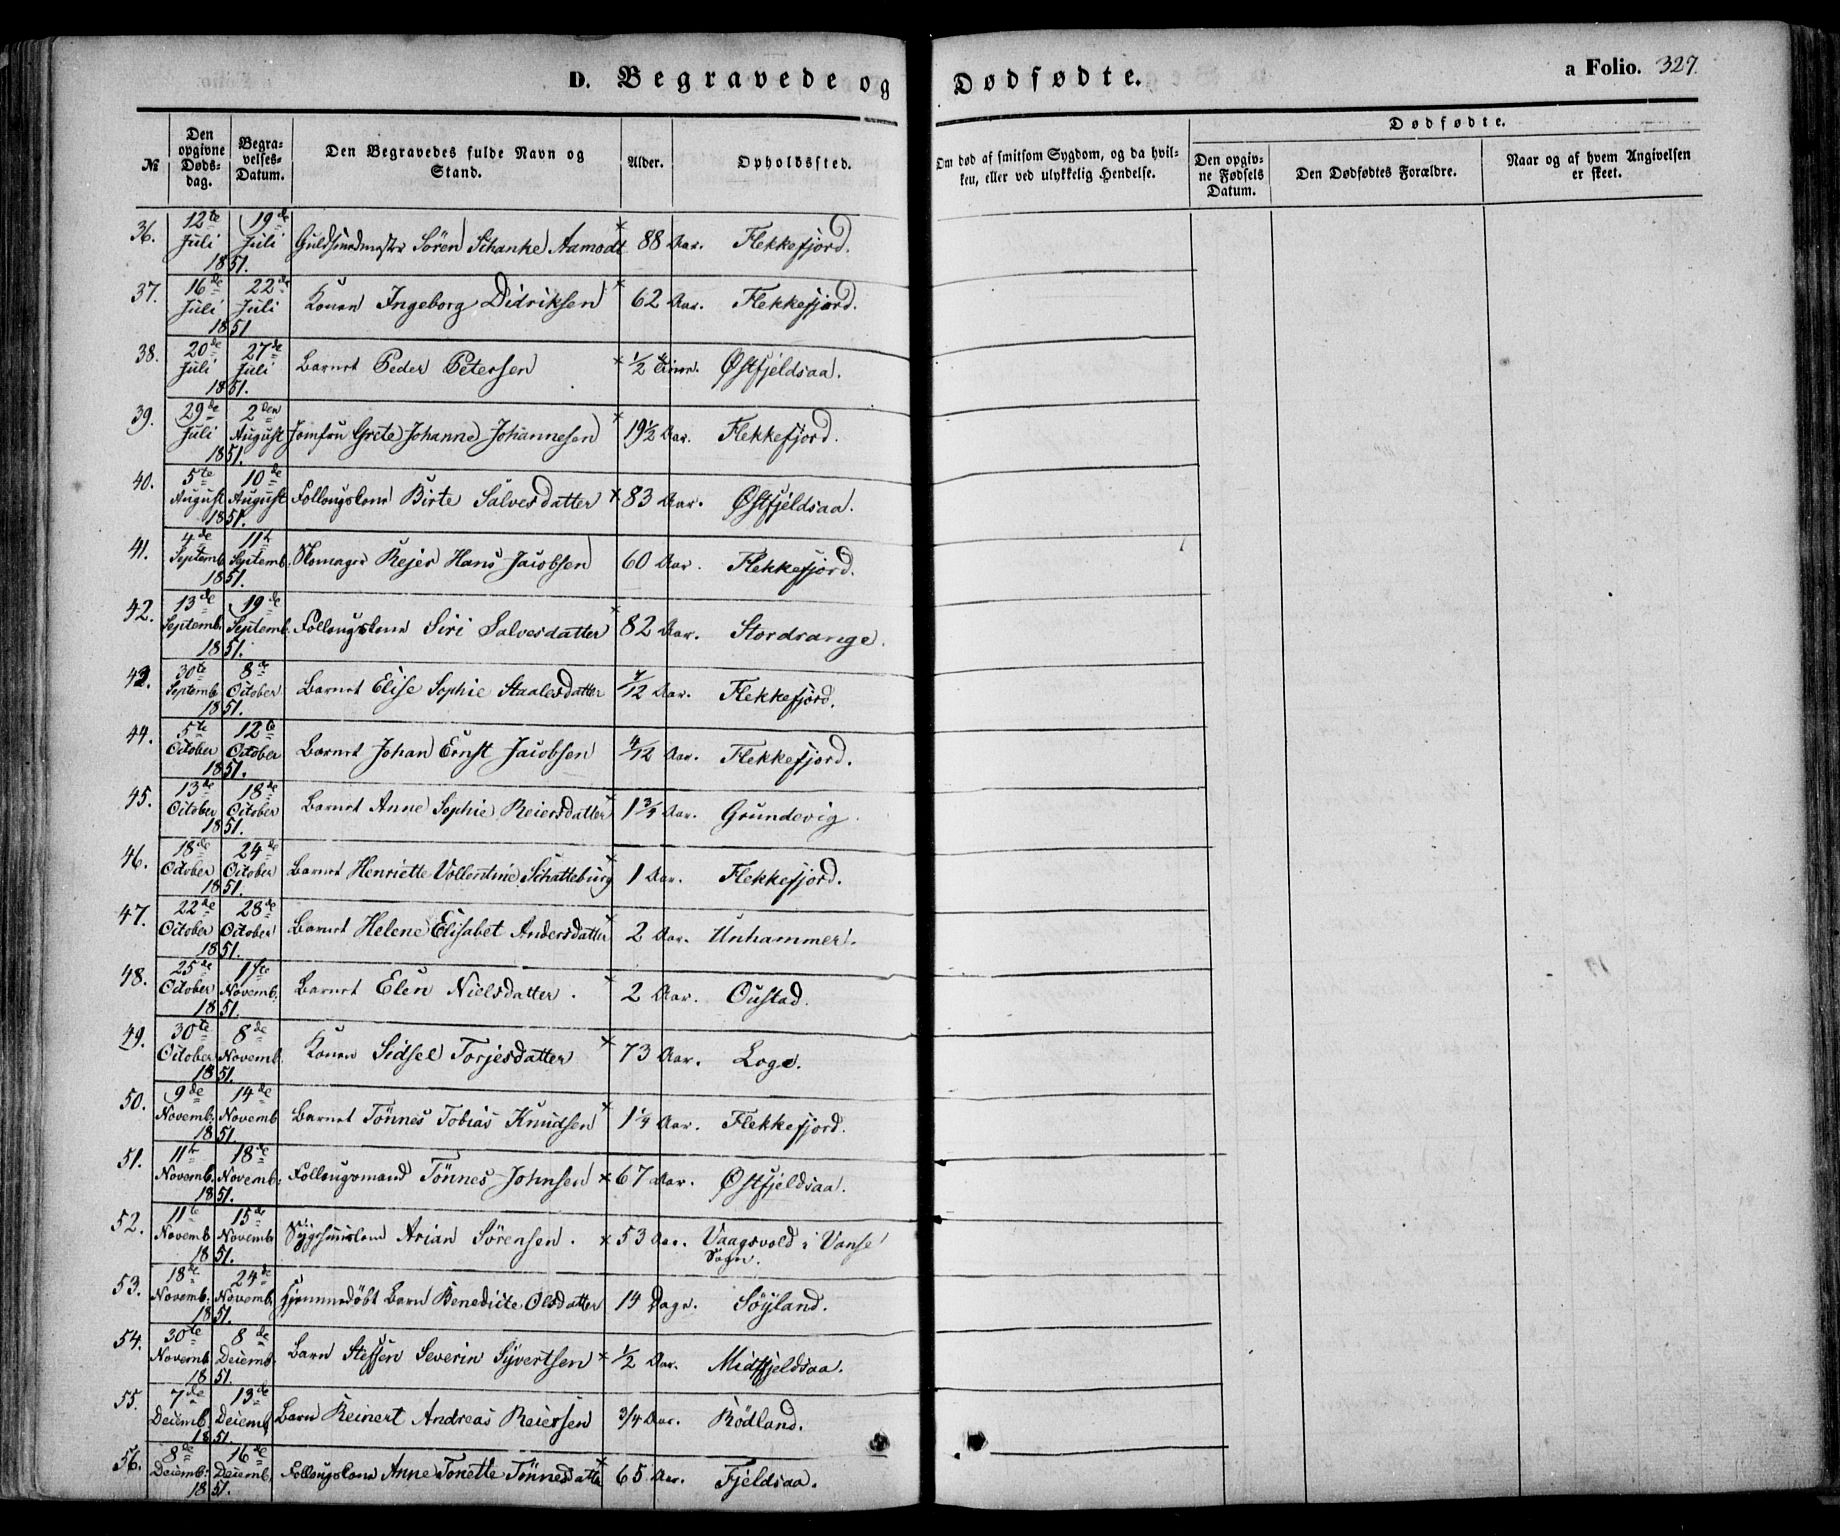 D. Begravede og Dødfødte.
a Folio. 327.
№
Den opgivne Døds-dag.
Begra-velses-Datum.
Den Begravedes fulde Navn og Stand.
Alder.
Opholdssted.
Om død af smitsom Sygdom, og da hvil-ken, eller ved ulykkelig Hendelse.
Dødfødte.
Den opgiv-ne Fødsels Datum.
Den Dødfødtes Forældre.
Naar og af hvem Angivelsen er skeet.
36. 12te Juli 19de Juli 1851. Guldsmedmester Sören Schanke Aamodt × 88 Aar. Flekkefjord.
37. 16de Juli 22de Juli 1851 Konen Ingeborg Didriksen × 62 Aar. Flekkefjord.
38. 20de Juli 27de Juli 1851. Barnet Peder Petersen × 1/2 Østfjeldsaa.
39. 29de Juli 2den August 1851. Jomfru Grete Johanne Johannesen × 19 1/2 Aar. Flekkefjord.
40. 5te August 10de August 1851. Follougskone Birte Salvesdatter × 83 Aar. Østfjeldsaa.
41. 4de Septemb. 11te Septemb. 1851. Skomager Rejer Hans Jacobsen 60 Aar. Flekkefjord.
42. 13de Septemb. 19de Septemb. 1851. Follougskone Siri Salvesdatter × 82 Aar. Stordrange.
43. 30te Septemb. 8de October 1851. Barnet Elise Sophie Staalesdatter /12 Aar. Flekkefjord.
44. 5te October 12te October 1851. Barnet Johan Ernst Jacobsen /12 Aar. Flekkefjord.
45. 13de October 18de October 1851. Barnet Anne Sophie Reiersdatter × 1 3/4 Aar. Grundevig.
46. 18de October 24de October 1851. Barnet Henriette Vollentine Schatteburg × 1 Aar. Flekkefjord.
47. 22de October 28de October 1851. Barnet Helene Elisabet Andersdatter × 2 Aar. Unhammer.
48. 25de October 1ste Novemb. 1851. Barnet Elen Nielsdatter. × 2 Aar. Oustad.
49. 30te October 8de Novemb. 1851. Konen Sidsel Torjesdatter × 73 Aar. Loge.
50. 9de Novemb. 14de Novemb 1851 Barnet Tönnes Tobias Knudsen × 1 1/4 Aar. Flekkefjord.
51. 11te Novemb. 18de Novemb. 1851. Follougsmand Tönnes Johnsen × 67 Aar. Østfjeldsaa.
52. 11te Novemb 15de Novemb 1851. Arian Sörensen. × 53 Aar. Vaagsvold i Vanse Sogn.
53. 18de Novemb. 24de Novemb. 1851. Hjemmedöbt Barn Benedicte Olsdatter 14 Dage. Söyland.
54. 30te Novemb. 8de Decemb. 1851. Barn Steffen Severin Syvertsen × 1/2 Aar. Midtfjeldsaa.
55. 7de Decemb. 13de Decemb. 1851. Barn Reinert Andreas Reiersen 3/4 Aar. Rödland.
56. 8de Decemb. 16de Decemb. 1851. Follougskone Anne Tonette Tönnesdatter × 65 Aar. Fjeldsaa.